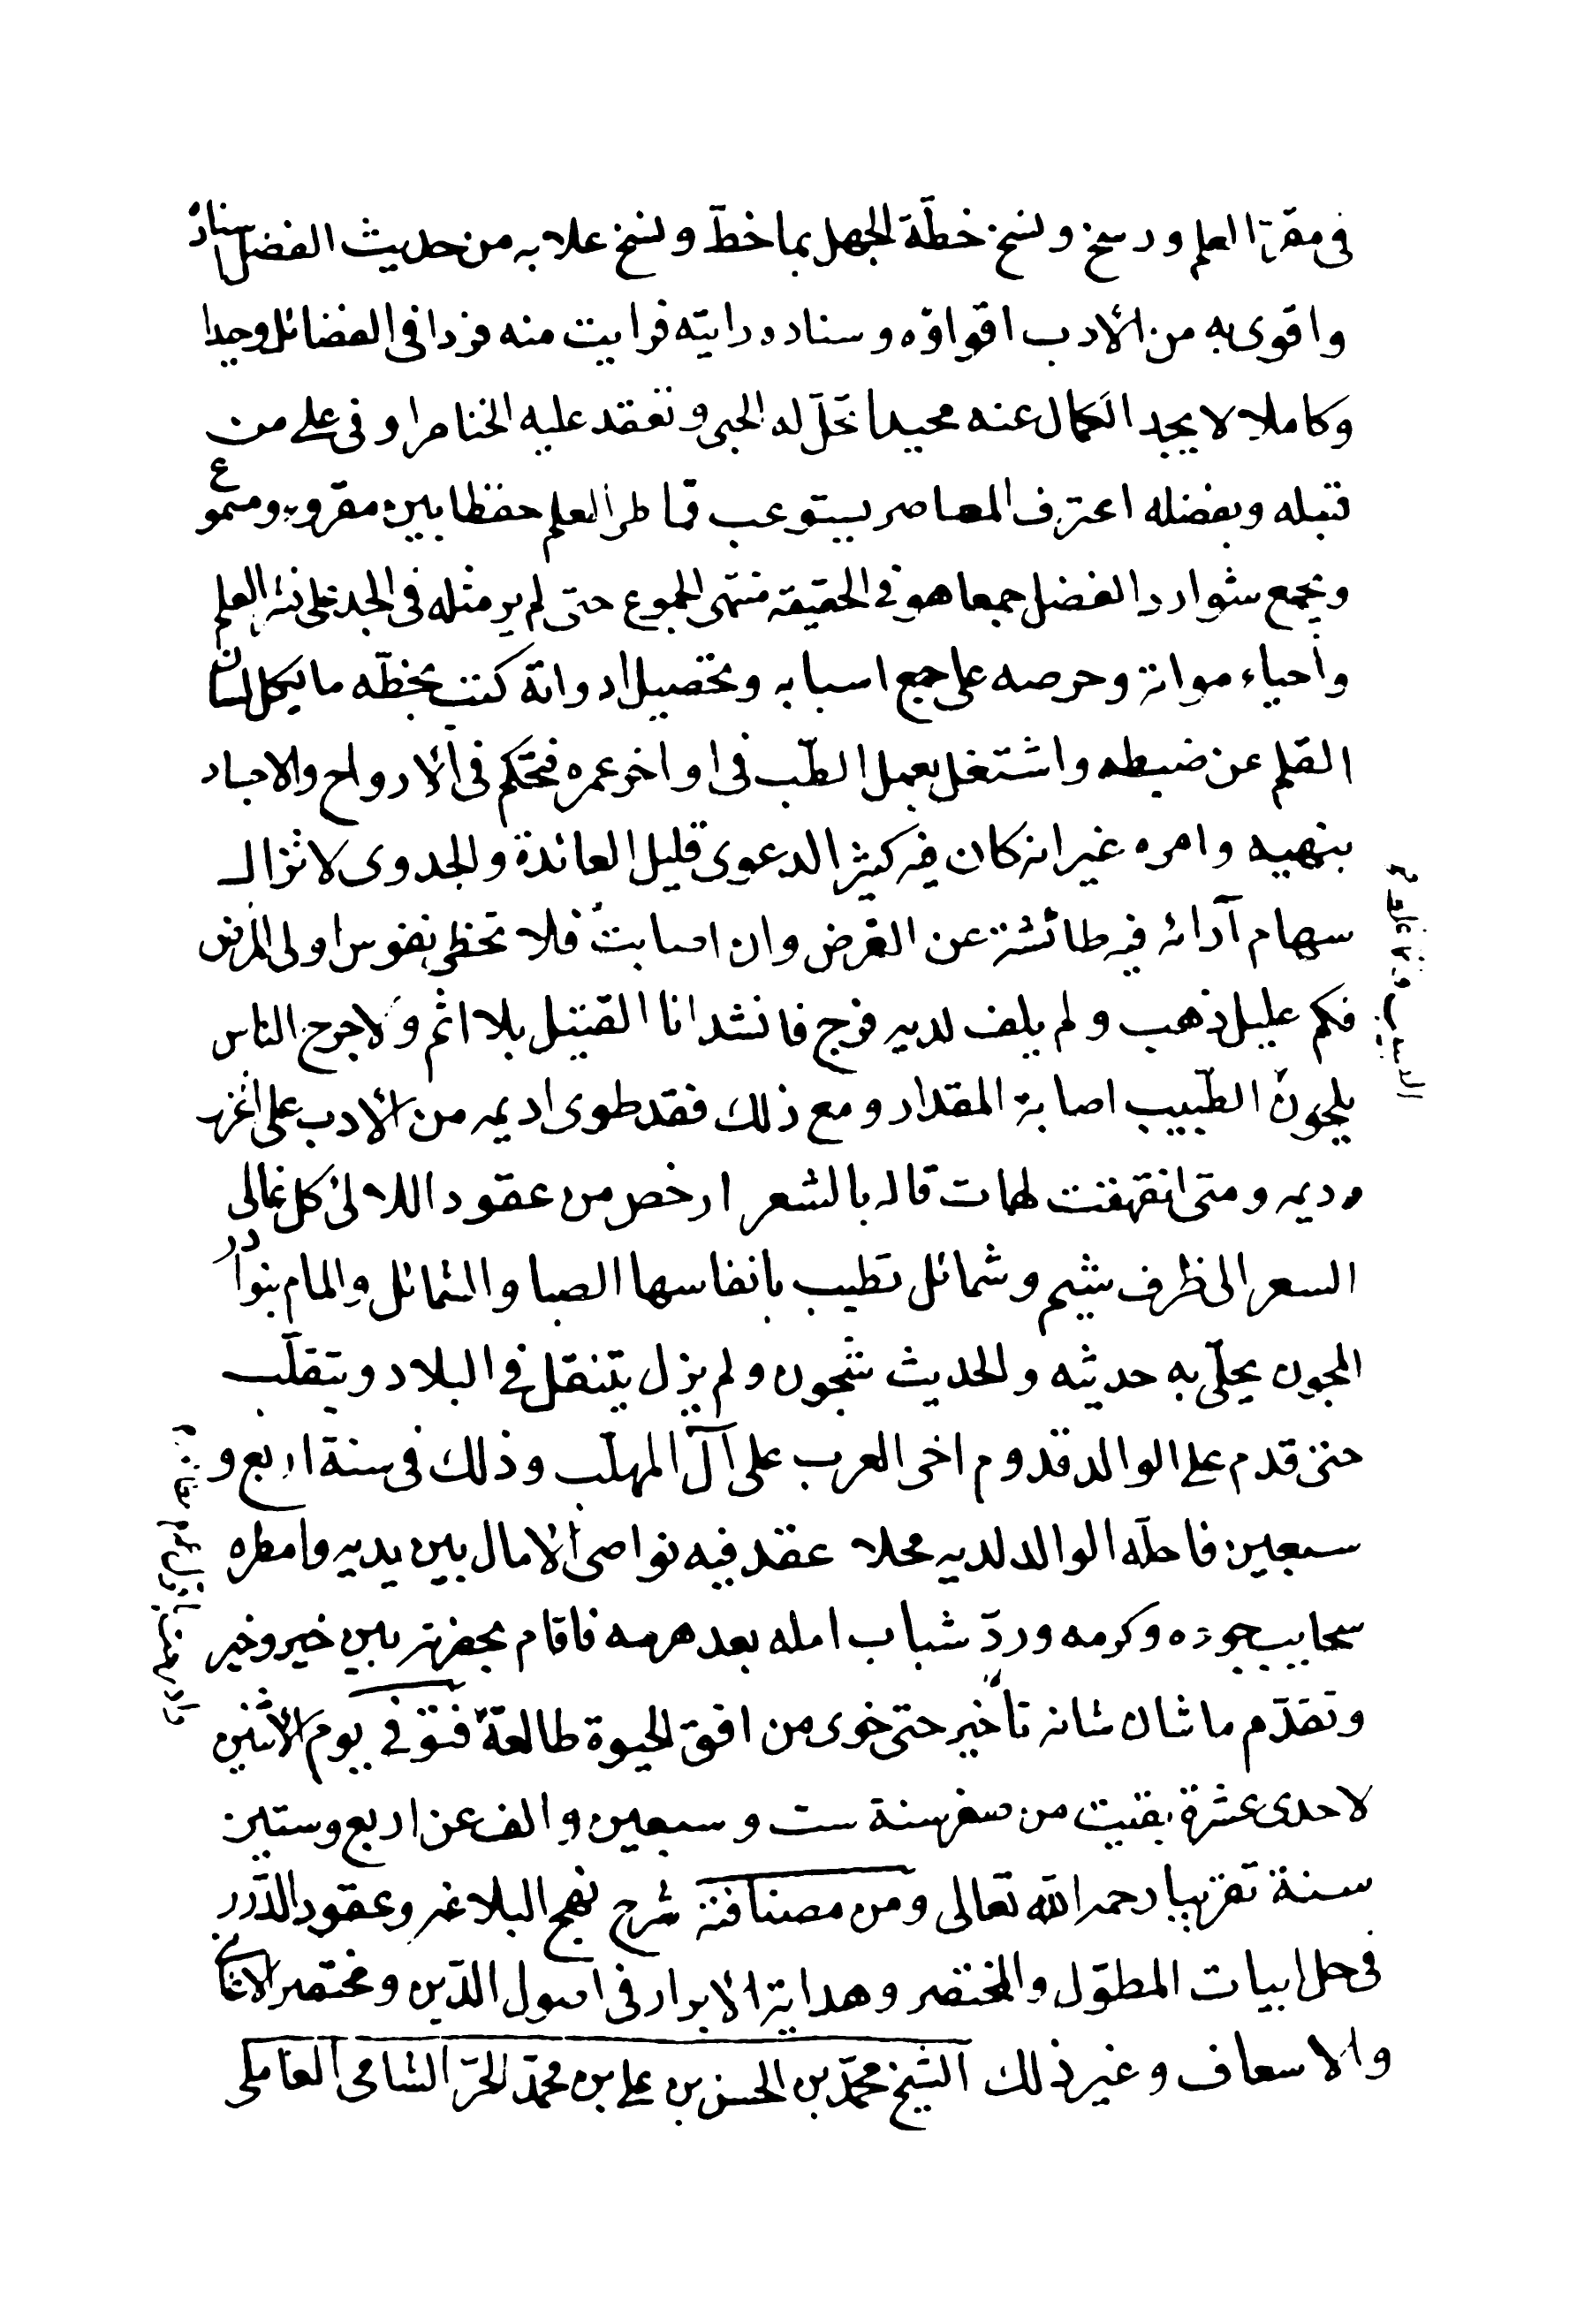 فى مقرة العلم ورسخ ونسخ خطّة الجهل بما خطّ ونسخ علا به من حديث الفضل اسناده
واقوى به من الأدب اقواؤه وسناده رايته فرايت منه فردا فى الفضائل وحيدا
وكاملا لا يجد الكمال عنه محيدا تحلّ له الحبى وتعقد عليه الخناصر اوفى على من
قبله وبفضله اعترف المعاصر يستوعب قماطر العلم حفظا بين مقروء ومسموع
ويجمع شوارد الفضل جمعا هو فى الحقيقة منتهى الجموع حتى لم ير مثله فى الجد على نشر العلم
وأحياء مواته وحرصه على جمع اسبابه وتحصيل ادواته كتب بخطّه ما يكل لسان
القلم عن ضبطه واشتغل بعمل الطّب فى اواخر عمره فتحكم فى الأرواح والاجساد
بنهيه وامره غير انه كان فيه كثير الدعوى قليل العائدة والجدوى لا تزال
سهام آرائه فيه طائشة عن الغرض وان اصابت فلا تخطى نفوس اولى المرض
فكم عليل ذهب ولم يلف لديه فرج فانشد انا القتيل بلا اثم ولا حرج الناس
يلحون الطّبيب اصابة المقدار ومع ذلك فقد طوى اديمه من الأدب على اغزر
ديمه ومتى انفهقت لهات قاله بالشعر ارخص من عقود اللالئ كل غالى
السعر الى ظرف شيم وشمائل تطيب بانفاسها الصبا والشمائل والمام بنوادر
المجون يحلّى به حديثه والحديث شجون ولم يزل يتنقل فى البلاد ويتقلّب
حتى قدم على الوالد قدوم اخى العرب على آل المهلّب وذلك فى سنة اربع و
سبعين فاحلّه الوالد لديه محلا عقد فيه نواصى الأمال بين يديه وامطره
سحايب جوده وكرمه وردّ شباب امله بعد هرمه فاقام بحضرته بين خير وخير
وتقدّم ما شان شانه تأخير حتى خوى من افق الحيوة طالعة فتوفى يوم الأثنين
لاحدى عشرة بقيت من صفر سنة ست وسبعين والف عن اربع وستين
سنة تقريبا رحمه الله تعالى ومن مصنفاته شرح نهج البلاغه وعقود الدّرر
فى حل ابيات المطوّل والمختصر وهداية الأبرار فى اصول الدّين ومختصر الأغانى
والاسعاف وغير ذلك الشيخ محمّد بن الحسن بن على بن محمّد الحرّ الشامى العاملى